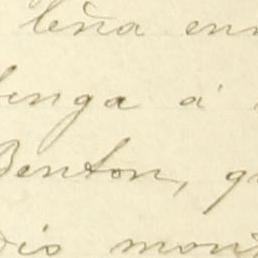 leña en
enga á
Benton, q
dis mon